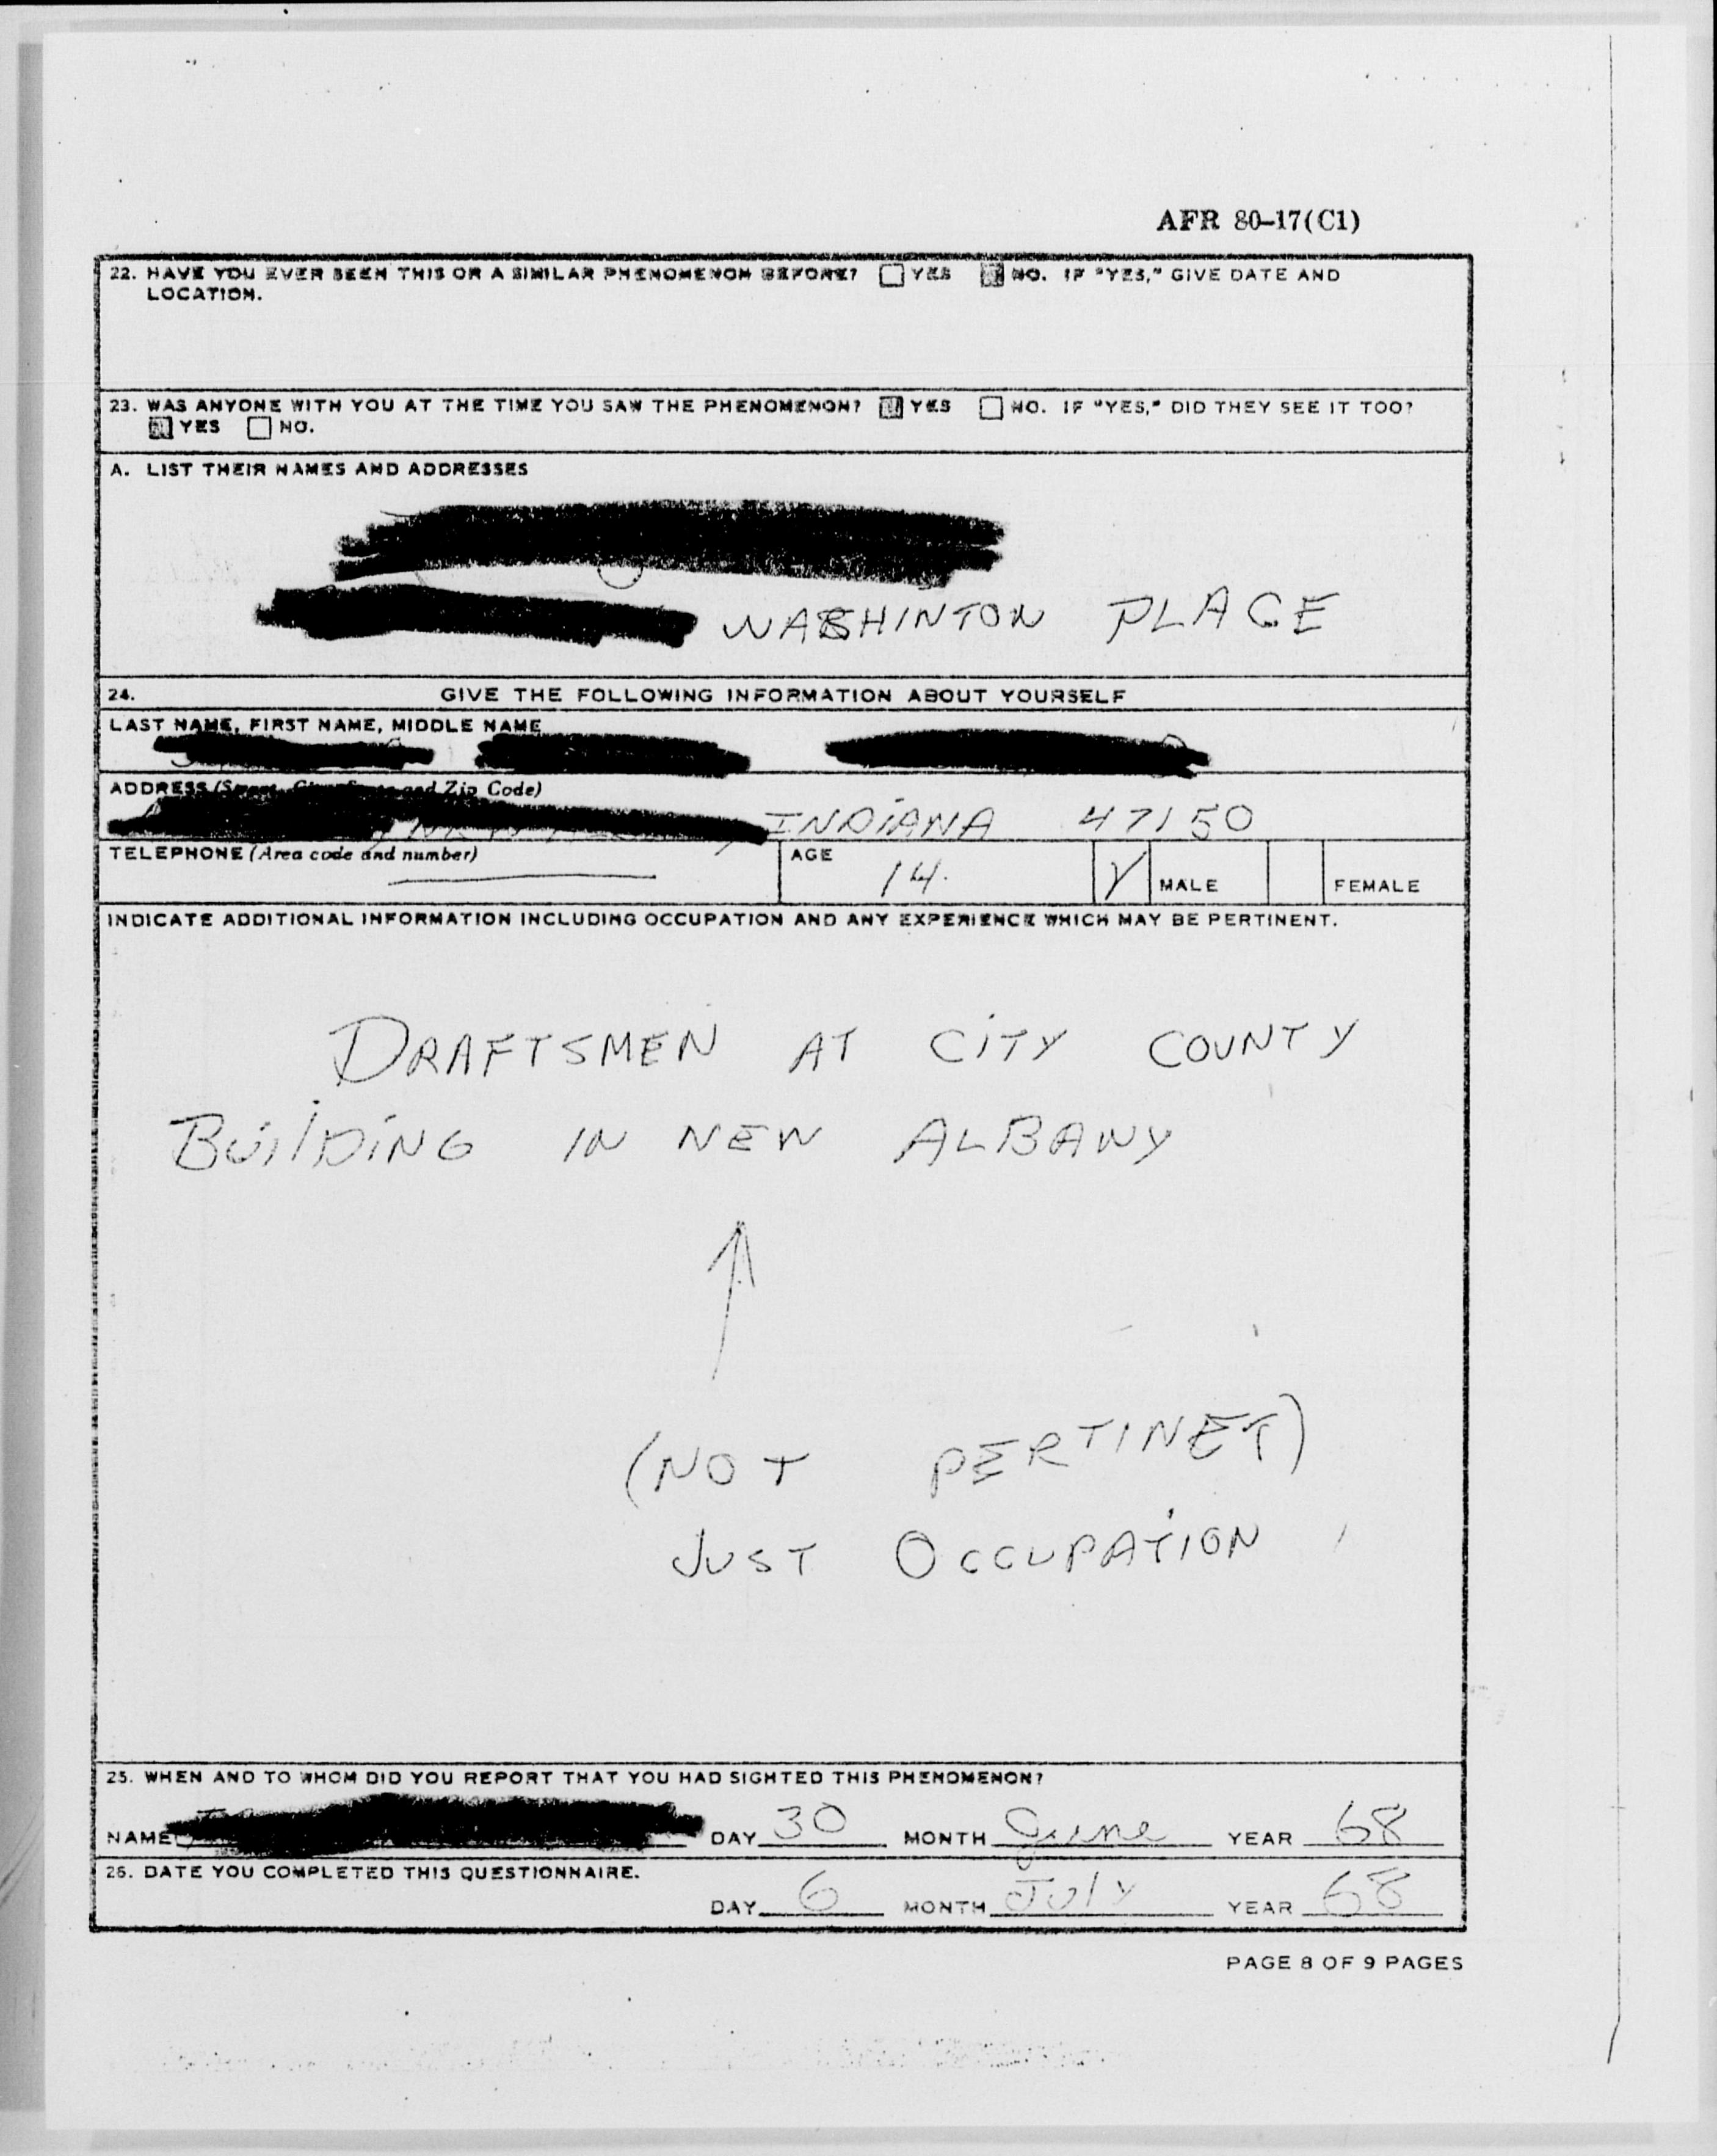 AFR 80-17(C1)
22. HAVE YOU EVER SEEN THIS OR A SIMILAR PHENOMENON BEFORE? YES NO. IF "YES," GIVE DATE AND
LOCATION.
23. WAS ANYONE WITH YOU AT THE TIME YOU SAW THE PHENOMENON? YES NO. IF "YES," DID THEY SEE IT TOO?
YES NO.
A. LIST THEIR NAMES AND ADDRESSES
WASHINTON PLACE
24. GIVE THE FOLLOWING INFORMATION ABOUT YOURSELF
LAST NAME, FIRST NAME, MIDDLE NAME
ADDRESS and Zip Code)
INDIANA 47150
TELEPHONE (Area code and number) AGE 14. MALE FEMALE
INDICATE ADDITIONAL INFORMATION INCLUDING OCCUPATION AND ANY EXPERIENCE WHICH MAY BE PERTINENT.
DRAFTSMEN AT CITY COUNTY
BUILDING IN NEW ALBANY
(NOT PERTINET)
JUST OCCUPATION
25. WHEN AND TO WHOM DID YOU REPORT THAT YOU HAD SIGHTED THIS PHENOMENON?
NAME DAY 30 MONTH June YEAR 68
26. DATE YOU COMPLETED THIS QUESTIONNAIRE.
DAY 6 MONTH July YEAR 68
PAGE 8 OF 9 PAGES